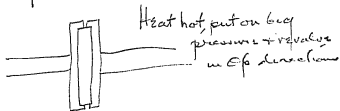 Heat hot, put on big
pressure + revolve
in opp directions